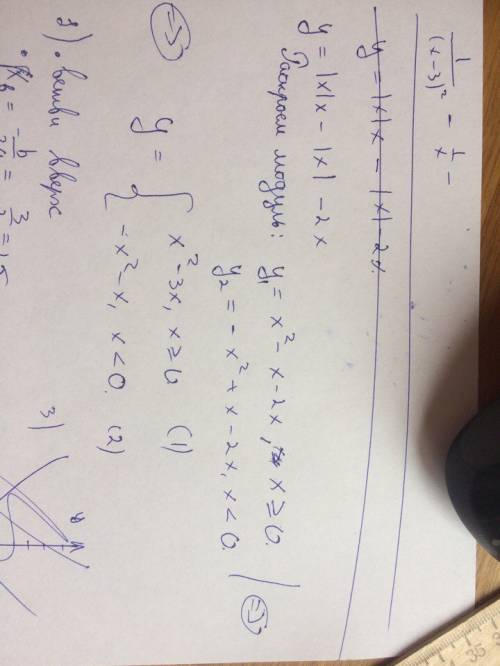 1/(x-3)² - 1/x -
y = |x|x - |x| - 2x
y = |x|x - |x| - 2x
Раскроем модуль: y₁ = x² - x - 2x, x ≥ 0.
y₂ = - x² + x - 2x, x < 0.
=>
=>
y = { x² - 3x, x ≥ 0 (1)
-x² - x, x < 0. (2)
• ветви вверх
3)
y
35